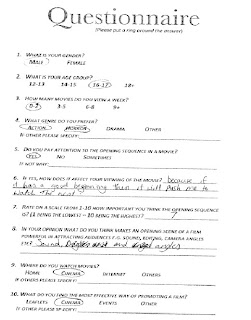 Questionnaire
(Please put a ring around the answer)
1. WHAT IS YOUR GENDER?
MALE FEMALE
2. WHAT IS YOUR AGE GROUP?
12-13 14-15 16-17 18+
3. HOW MANY MOVIES DO YOU VIEW A WEEK?
0-3 3-5 6-8 9+
4. WHAT GENRE DO YOU PREFER?
ACTION HORROR DRAMA OTHER
IF OTHER PLEASE SPECIFY:
5. DO YOU PAY ATTENTION TO THE OPENING SEQUENCE IN A MOVIE?
YES NO SOMETIMES
IF NOT WHY?
6. IF YES, HOW DOES IT AFFECT YOUR VIEWING OF THE MOVIE? because if
it has a good beginning then it will make me to
watch the rest
7. RATE ON A SCALE FROM 1-10 HOW IMPORTANT YOU THINK THE OPENING
SEQUENCE IS? (1 BEING THE LOWEST – 10 BEING THE HIGHEST) 7
8. IN YOUR OPINION WHAT DO YOU THINK MAKES AN OPENING SCENE IN A FILM
POWERFUL OR ATTRACTING AUDIENCES E.G. SOUND, EDITING, CAMERA ANGLES
ETC? Sound, and angles
9. WHERE DO YOU WATCH MOVIES?
HOME CINEMA INTERNET OTHERS
IF OTHERS PLEASE SPECIFY:
10. WHAT DO YOU FIND THE MOST EFFECTIVE WAY OF PROMOTING A FILM?
LEAFLETS CINEMA EVENTS OTHER
IF OTHER PLEASE SPECIFY: